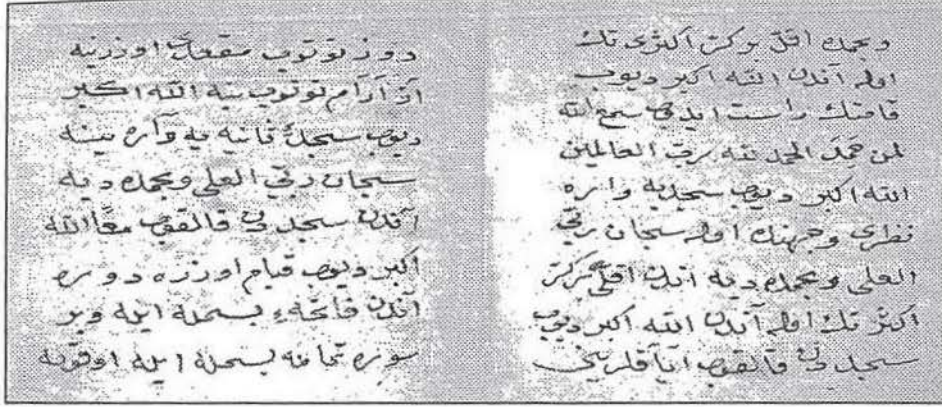 وبحمده اقلّ بوكز اكثرى تك
اوله آندن الله اكبر ديوب
قامتك راست ايدوب سمع الله
لمن حمد الحمد لله ربّ العالمين
الله اكبر ديوب سجديه واره
نظرى وجهتك اوله سبحان ربّي
العلى وبحمده ديه انك اقلّى بركز
اكثر تك اوله آندن الله اكبر ديوب
سجدن قالقوب اياقلرينى
دوز توتوب مقعدك اوزرينه
از آرام توتوب ينه الله اكبر
ديوب سجدۀ ثانيه يه واره ينه
سبحان ربّي العلى وبحمده ديه
آندن سجدن قالقوب معًا الله
اكبر ديوب قيام اوزره دوره
آندن فاتحهء بسمله ايله وبر
سوره تمامه بسمله ايله اوقويه